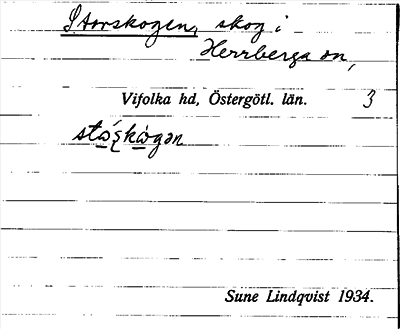 Storskogen, skog i
Herrberga sn,
Vifolka hd, Östergötl. län. 3
Sune Lindqvist 1934.